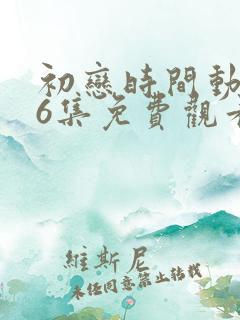 初戀時間動
6集免費觀看
維斯尼
未任同意禁止转载